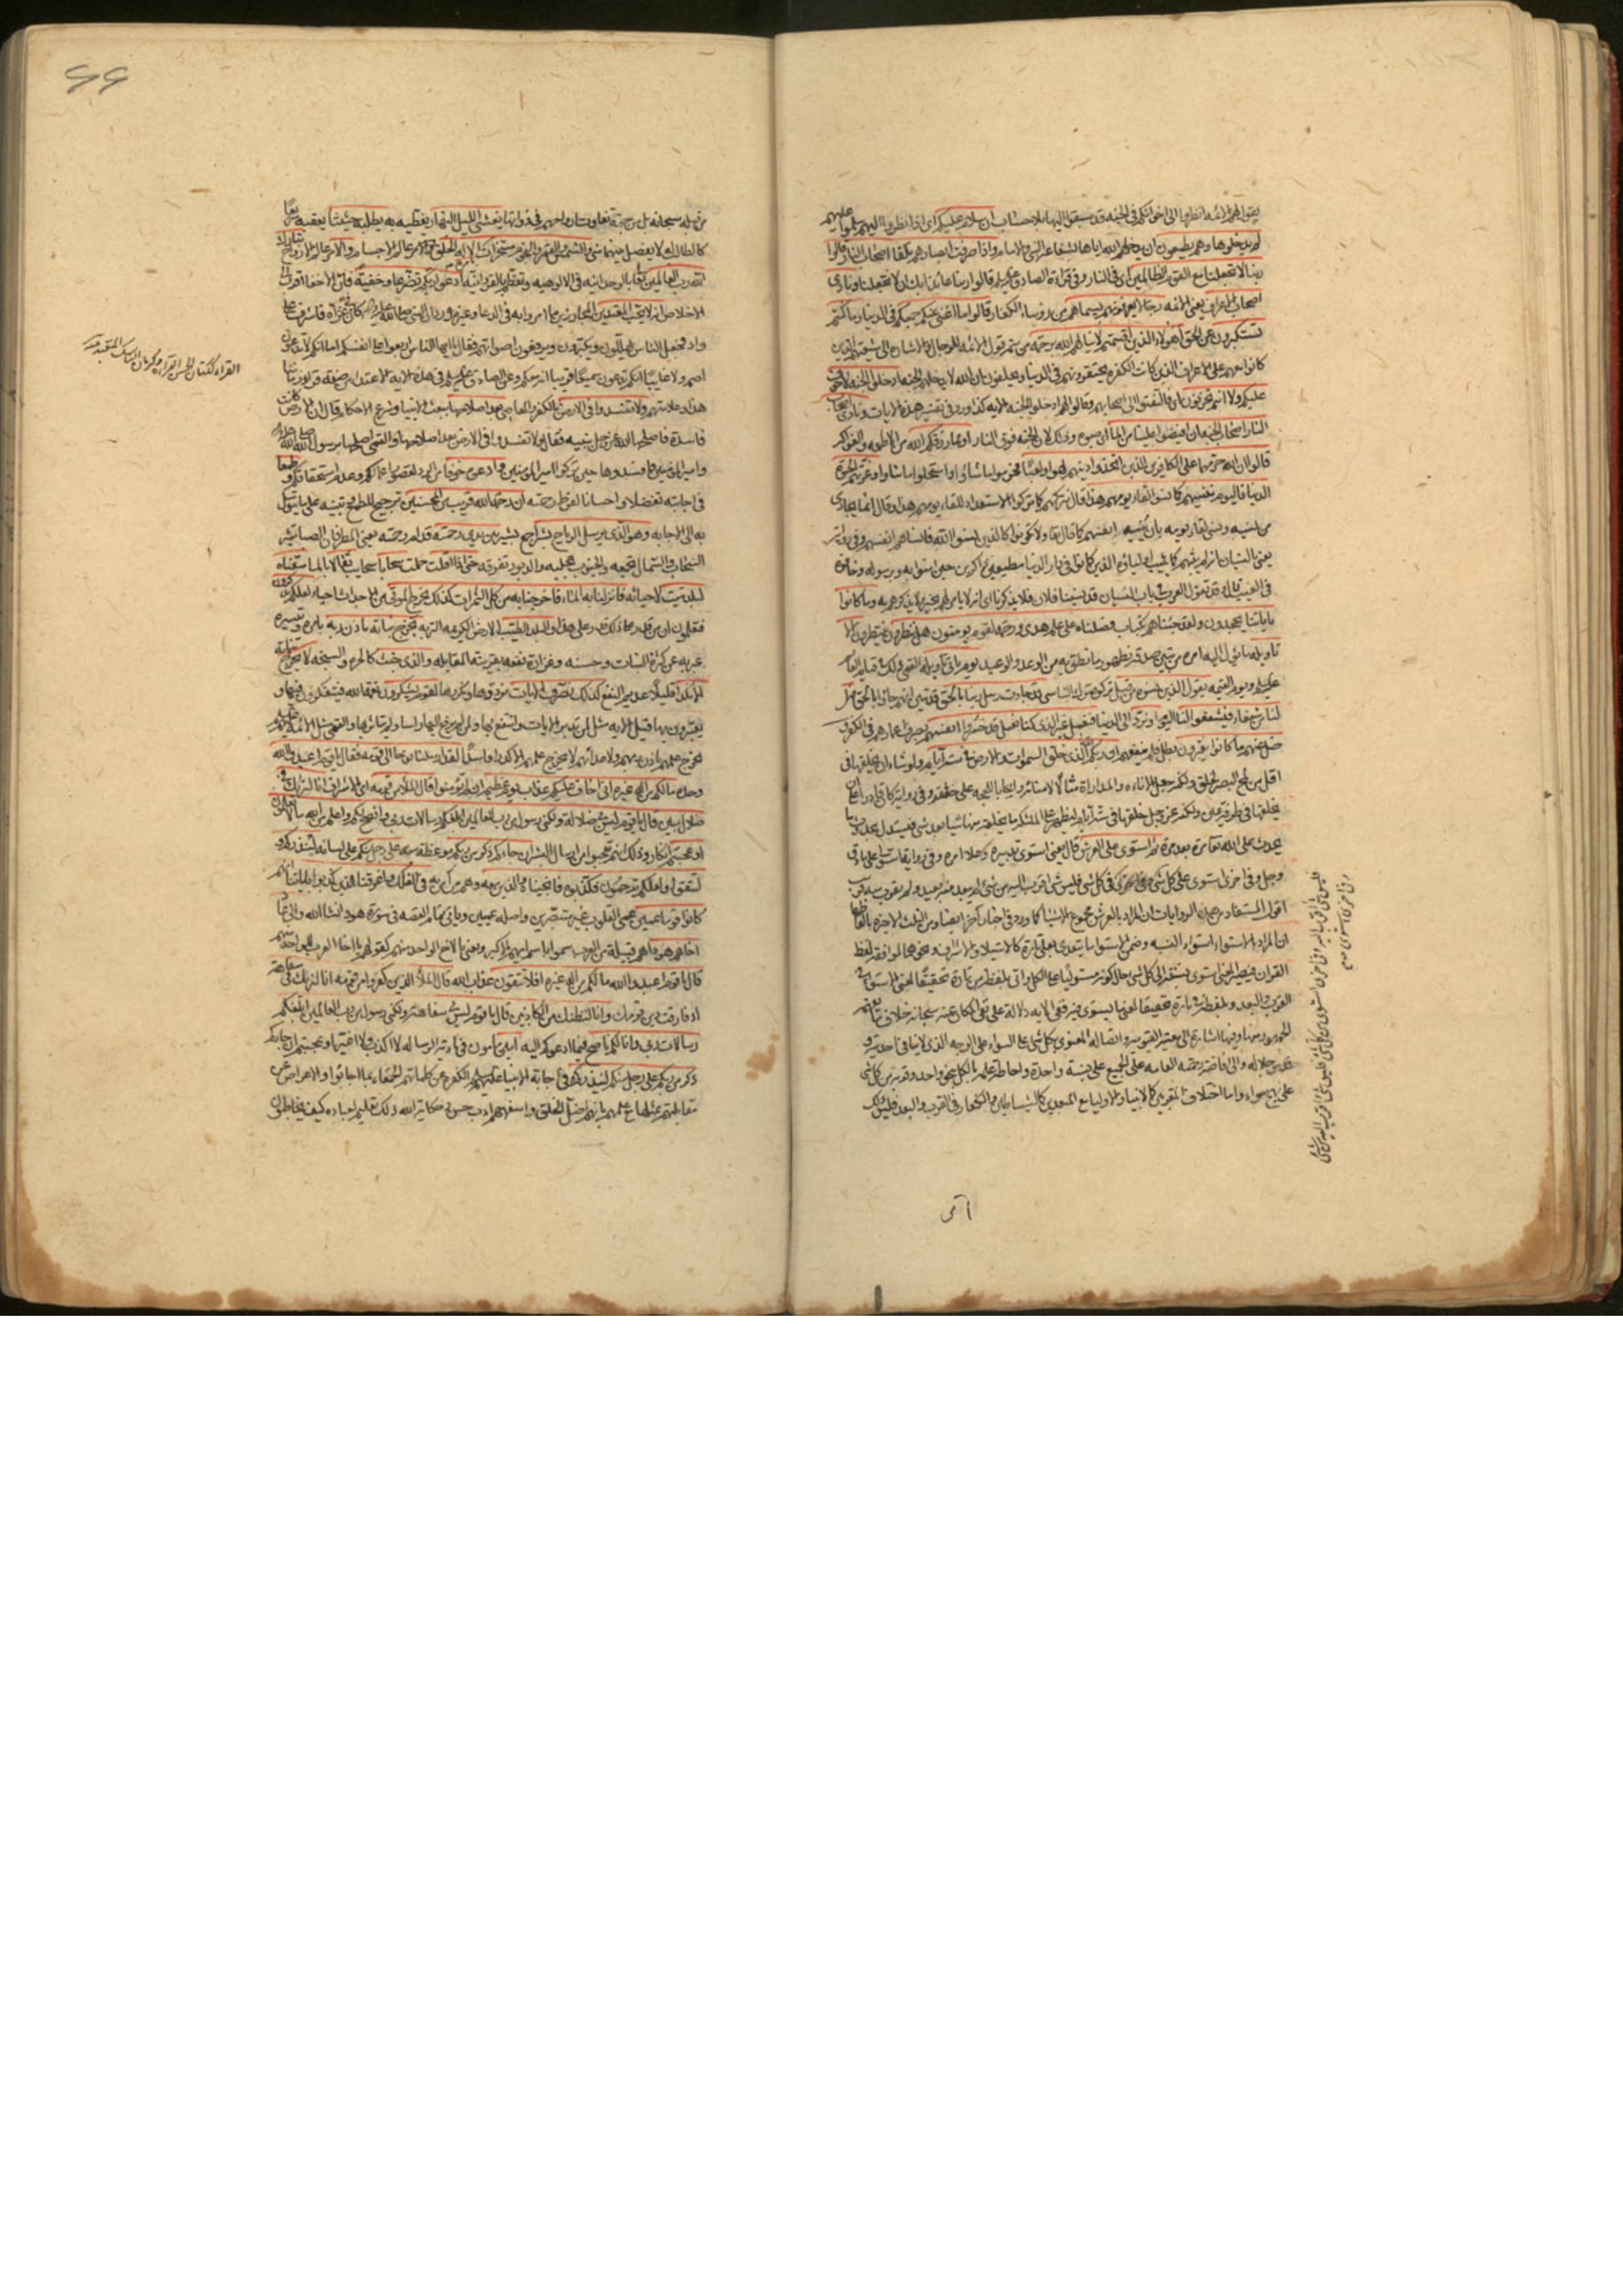 يقول الائمه انظروا الى اخوانكم في الجنه قد سبقوا اليها بلا حساب ان سلام عليكم اى اذا نظروا اليهم سلموا عليهم
لم يدخلوها وهم يطمعون ان يدخلهم الله اياها بشفاعة النبى والامام واذا صرفت ابصارهم تلقاء اصحاب النار قالوا
ربنا لا تجعلنا مع القوم الظالمين اى فى النار وفى قراءة الصادق قالوا ربنا عائذا بك ان لا تجعلنا ونادى
اصحاب الاعراف يعنى الائمه رجالا يعرفونهم بسيماهم من رؤساء الكفار قالوا ما اغنى عنكم جمعكم فى الدنيا وما كنتم
تستكبرون عن الحق اهؤلاء الذين اقسمتم لا ينالهم الله برحمه من تتمه قول الائمه للرجال والاشاره الى شيعتهم الذين
كانوا معهم على الاعراف الذين كانت الكفره يحتقرونهم فى الدنيا ويحلفون ان الله لا يدخلهم الجنه ادخلوا الجنه لا خوف
عليكم ولا انتم تحزنون اى فالتفتوا الى اصحابهم وقالوا لهم ادخلوا الجنه الايه كذا ورد فى تفسير هذه الايات ونادى اصحاب
النار اصحاب الجنه ان افيضوا علينا من الماء اى صبوه وذلك لان الجنه فوق النار او مما رزقكم الله من الاطعمه والفواكه
قالوا ان الله حرمهما على الكافرين الذين اتخذوا دينهم لهوا ولعبا فحرموا ما شاؤا واستحلوا ما شاؤا وغرتهم الحيوة
الدنيا فاليوم ننسيهم كما نسوا لقاء يومهم هذا قال نتركهم كما تركوا الاستعداد للقاء يومهم هذا وقال انما يجازى
من نسيه ونسى لقاء يومه بان ينسيهم انفسهم كما قال تعا ولا تكونوا كالذين نسوا الله فانساهم انفسهم وفى روايه
يعنى بالنسيان انه لم يثبهم كما يثيب اولياءه الذين كانوا فى دار الدنيا مطيعين ذاكرين حين امنوا به وبرسوله وخافوه
فى الغيب قال وقد تقول العرب فى باب النسيان قد نسينا فلان فلا يذكرنا اى انه لا يامر لهم بخير ولا يذكرهم به وما كانوا
باياتنا يجحدون ولقد جئناهم بكتاب فصلناه على علم هدى ورحمة لقوم يومنون هل ينظرون ينتظرون الا
تاويله ما يئول اليه امره من تبين صدقه بظهور ما نطق به من الوعد والوعيد يوم ياتى تاويله القمى ذلك فى قيام القائم
ويوم القيمه يقول الذين نسوه من قبل تركوه ترك الناسى قد جاءت رسل ربنا بالحق قد تبين انهم جاؤا بالحق فهل
لنا من شفعاء فيشفعوا لنا اليوم او نرد الى الدنيا فنعمل غير الذى كنا نعمل قد خسروا انفسهم بصرف اعمارهم فى الكفر و
ضل عنهم ما كانوا يفترون بطل فلم ينفعهم ان ربكم الله الذى خلق السموات والارض فى ستة ايام ولو شاء ان يخلقها فى
اقل من لمح البصر لخلق ولكنه جعل الاناءه والمداراة مثالا لامنائه وايجابا للحجه على خلقه وفى روايه كان قادرا على ان
يخلقها فى طرفة عين ولكنه عز وجل خلقها فى ستة ايام ليظهر على الملئكه ما يخلقه منها شيئا بعد شئ فيستدل بحدوث ما
يحدث على الله تعا مرة بعد مرة ثم استوى على العرش قال يعنى استوى تدبيره وعلا امره وفى روايه استولى على ما دق
وجل وفى اخرى استوى على كل شئ وفى اخرى فى كل شئ فليس شئ اقرب اليه من شئ لم يبعد منه بعيد ولم يقرب منه قريب
اقول المستفاد من هذه الروايات ان المراد بالعرش مجموع الاشياء كما ورد فى اخبار اخر ايضا ومن الثلث الاخيره بالفاظها
ان المراد بالاستواء استواء النسبه وضمن الاستواء ما يتعدى بعلى تارة كالاستيلاء والاشراف ونحوهما لموافقة لفظ
القران فيصير المعنى استوى نسبته الى كل شئ حال كونه مستوليا على الكل واتى بلفظة من تارة تحقيقا لمعنى الاستواء فى
القرب والبعد وبلفظة فى تارة تحقيقا لمعنى ما يستوى فيه ففى الايه دلالة على نفى المكان عنه سبحانه خلاف ما يفهمه
الجمهور منها وفيها اشارة الى معيته القيوميه واتصاله المعنوى بكل شئ على السواء على الوجه الذى لا ينافى احديته و
قدس جلاله والى افاضة رحمته العامه على الجميع على نسبة واحدة واحاطة علمه بالكل بنحو واحد وقربه من كل شئ
على نهج سواء واما اختلاف المقربين كالانبياء والاولياء مع المبعدين كالشياطين والكفار فى القرب والبعد فليس ذلك
من قبله سبحانه بل من جهة تفاوت ارواحهم فى ذواتها يغشى الليل النهار يغطيه به يطلبه حثيثا يعقبه سريعا
كالطالب له لا يفصل بينهما شئ والشمس والقمر والنجوم مسخرات بامره الا له الخلق والامر عالم الاجسام وعالم الارواح تبارك
الله رب العالمين تعالى بالوحدانيه فى الالوهيه وتعظم بالفردانيه ادعوا ربكم تضرعا وخفية فان الاخفاء اقرب الى
الاخلاص انه لا يحب المعتدين المجاوزين ما امروا به فى الدعاء وغيره وروى ان النبى صلى الله عليه واله كان فى غزاة فاشرفوا على
واد فجعل الناس يهللون ويكبرون ويرفعون اصواتهم فقال يا ايها الناس اربعوا على انفسكم اما انكم لا تدعون
اصم ولا غايبا انكم تدعون سميعا قريبا انه معكم وعن الصادق
هذا وعلانيتهم ولا تفسدوا فى الارض بالكفر والمعاصى بعد اصلاحها ببعث الانبياء وشرع الاحكام قال ان الارض كانت
فاسدة فاصلحها الله عز وجل بنبيه فقال ولا تفسدوا فى الارض بعد اصلاحها والقمى اصلحها برسول الله
وامير المومنين فافسدوها حين تركوا امير المومنين وادعوه خوفا من الرد لقصور اعمالكم وعدم استحقاقكم وطمعا
فى اجابته تفضلا واحسانا لفرط رحمته ان رحمة الله قريب من المحسنين ترجيح للطمع وتنبيه على ما يتوسل
به الى الاجابه وهو الذى يرسل الرياح بشرا جمع بشير بين يدى رحمته قدام رحمته يعنى المطر فان الصبا تثير
السحاب والشمال تجمعه والجنوب تجلبه والدبور تفرقه حتى اذا اقلت حملت سحابا سحائب ثقالا بالماء سقناه
لبلد ميت لاحيائه فانزلنا به الماء فاخرجنا به من كل الثمرات كذلك نخرج الموتى من الاجداث احياء لعلكم تذكرون
فتعلمون ان من قدر على ذلك قدر على هذا والبلد الطيب الارض الكريمه التربه يخرج نباته باذن ربه بامره وتيسيره
عبر به عن كثرة النبات وحسنه وغزارة نفعه بقرينة المقابله والذى خبث كالحره والسبخه لا يخرج نباته
الا نكدا قليلا عديم النفع كذلك نصرف الايات نرددها ونكررها لقوم يشكرون نعمة الله فيتفكرون فيها و
يعتبرون بها وقيل الايه مثل لمن تدبر الايات وانتفع بها ولمن لم يرفع اليها راسا ولم يتاثر بها والقمى مثل الائمه
يخرج علمهم باذن ربهم ولاعدائهم لا يخرج علمهم الا كدرا فاسدا لقد ارسلنا نوحا الى قومه فقال يا قوم اعبدوا الله
وحده ما لكم من اله غيره انى اخاف عليكم عذاب يوم عظيم ان لم تؤمنوا قال الملأ من قومه اى الاشراف انا لنريك فى
ضلال مبين قال يا قوم ليس بى ضلالة ولكنى رسول من رب العالمين ابلغكم رسالات ربى وانصح لكم واعلم من الله ما لا تعلمون
او عجبتم انكار وذلك انهم تعجبوا من ارسال البشر ان جاءكم ذكر من ربكم موعظة منه على رجل منكم على لسانه لينذركم و
لتتقوا ولعلكم ترحمون فكذبوه فانجيناه والذين معه وهم من امن به فى الفلك واغرقنا الذين كذبوا باياتنا انهم
كانوا قوما عمين عمى القلوب غير مستبصرين واصله عميين وياتى تمام القصه فى سورة هود انشاء الله والى عاد
اخاهم هودا هم قبيلة من العرب سموا باسم ابيهم الاكبر ويعنى بالاخ الواحد منهم كقولهم يا اخا العرب للواحد منهم
قال يا قوم اعبدوا الله ما لكم من اله غيره افلا تتقون عذاب الله قال الملأ الذين كفروا من قومه انا لنريك فى سفاهة
اذ فارقت دين قومك وانا لنظنك من الكاذبين قال يا قوم ليس بى سفاهة ولكنى رسول من رب العالمين ابلغكم
رسالات ربى وانا لكم ناصح فيما ادعوكم اليه امين مامون فى تادية الرساله لا اكذب ولا اغير او عجبتم ان جاءكم
ذكر من ربكم على رجل منكم لينذركم فى اجابة الانبياء الكفره عن كلماتهم الحمقاء بما اجابوا والاعراض عن
مقابلتهم بمثلها مع علمهم بانهم اضل الخلق واسفههم ادب حسن وحكاية الله ذلك تعليم لعباده كيف يخاطبون